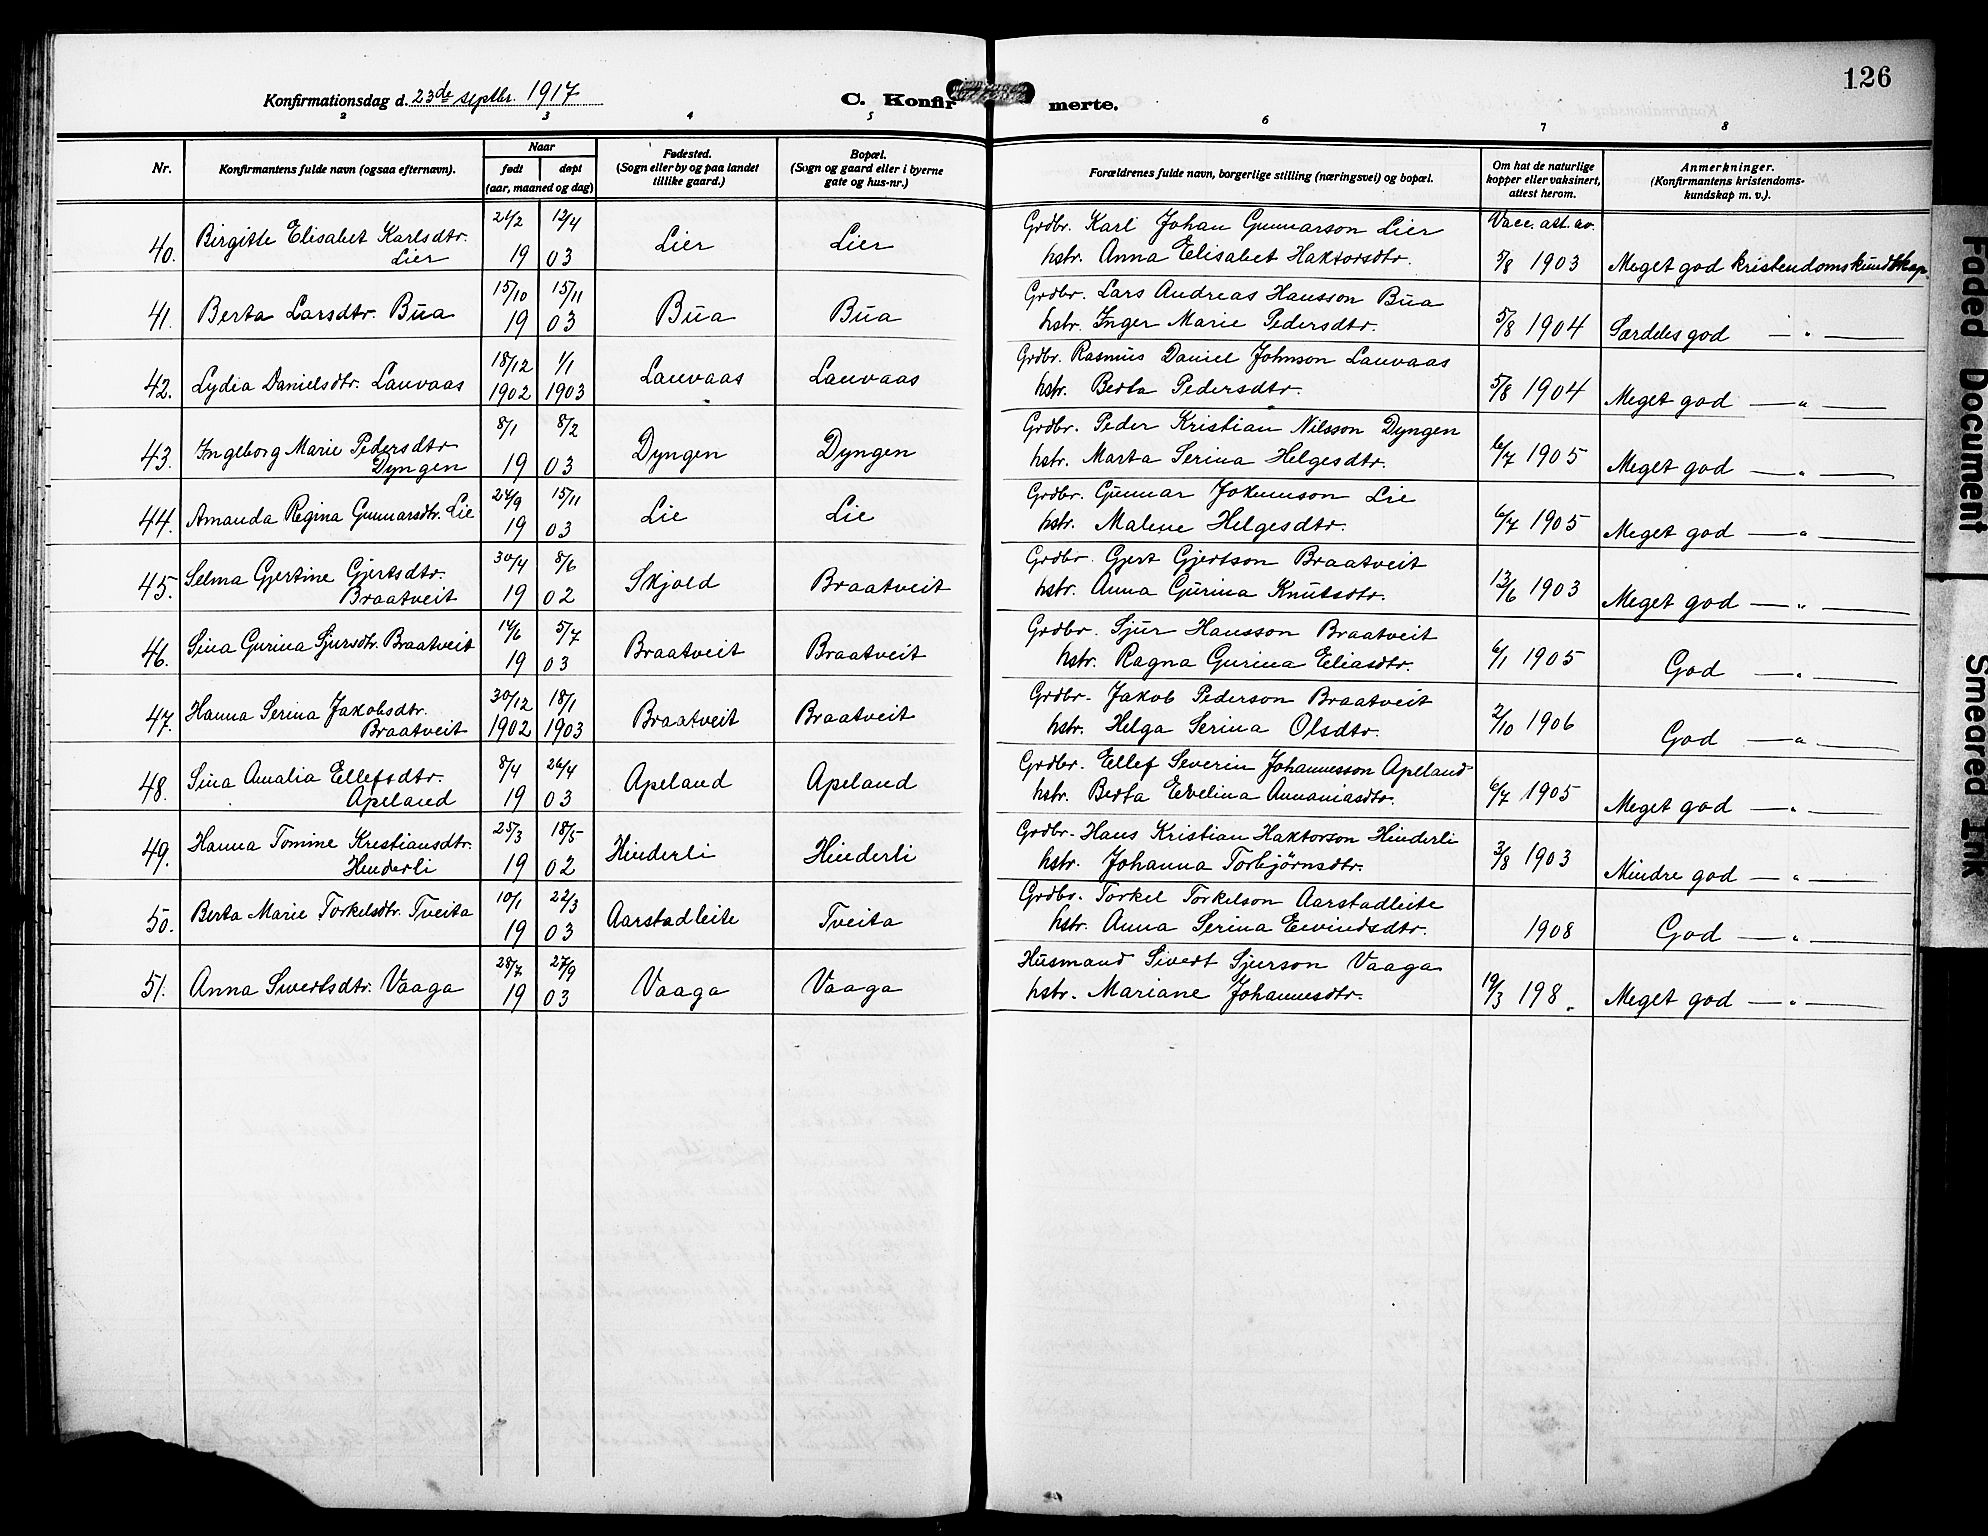 126
Konfirmationsdag d. 23de septbr. 1917
C. Konfir merte.
2 3 4 5 6 7 8
Nr. Konfirmantens fulde navn (ogsaa efternavn). Naar født døpt (aar, maaned og dag) Fødested. (Sogn eller by og paa landet tillike gaard.) Bopæl. (Sogn og gaard eller i byerne gate og hus-nr.) Forældrenes fulde navn, borgerlige stilling (næringsvei) og bopæl. Om hat de naturlige kopper eller vaksinert, attest herom. Anmerkninger. (Konfirmantens kristendoms- kundskap m. v.).
Birgitte Elisabet Karlsdtr. 21/2 12/4 Grdbr. Karl Johan Gunnarson Lier Vacc. att. av.
40. Lier 19 03 Lier Lier hstr. Anna Elisabet Haktorsdtr. 5/8 1903 Meget god kristendomskundskap.
15/10 15/11 Grdbr. Lars Andreas Hansson Bua
41. Berta Larsdtr. Bua 19 03 Bua Bua hstr. Inger Marie Pedersdtr. 5/8 1904 Særdeles god — " —
18/12 1/1 Grdbr. Rasmus Daniel Johnson Lauvaas
42. Lydia Danielsdtr. Lauvaas 1902 1903 Lauvaas Lauvaas hstr. Berta Pedersdtr. 5/8 1904 Meget god — " —
Ingeborg Marie Pedersdtr 8/1 8/2 Grdbr. Peder Kristian Nilsson Dyngen
43. Dyngen 19 03 Dyngen Dyngen hstr. Marta Serina Helgesdtr. 6/7 1905 Meget god — " —
15/11 Grdbr. Gunnar Lie
44. Amanda Regina Gunnarsdtr. Lie 19 03 Lie Lie hstr. Malene Helgesdtr. 6/7 1905 Meget god — " —
Selma Gjertine Gjertsdtr. 30/4 8/6 Grdbr. Gjert Gjertson Braatveit
45. Braatveit 19 02 Skjold Braatveit hstr. Anna Gurina Knutsdtr. 13/6 1903 Meget god — " —
14/6 5/7 Grdbr. Sjur Hansson Braatveit
46. Sina Gurina Sjursdtr. Braatveit 19 03 Braatveit Braatveit hstr. Ragna Gurina Eliasdtr. 6/1 1905 God — " —
Hanna Serina Jakobsdtr. 30/12 18/1 Grdbr. Jakob Pederson Braatveit
47. Braatveit 1902 1903 Braatveit Braatveit hstr. Helga Serina Olsdtr. 2/10 1906 God — " —
Sina Amalia Ellefsdtr. 8/4 26/4 Grdbr. Ellef Severin Johannesson Apeland
48. Apeland 19 03 Apeland Apeland hstr. Berta Evelina Annaniasdtr. 6/7 1905 Meget god — " —
Hanna Tomine Kristiansdtr. 25/3 18/5 Grdbr. Hans Kristian Haktorson Hinderli
49. Hinderli 19 02 Hinderli Hinderli hstr. Johanna Torbjørnsdtr. 3/8 1903 Mindre god — " —
10/1 22/3 Grdbr. Torkel Torkelson Aarstadleite
50. Berta Marie Torkelsdtr. Tveita 19 03 Aarstadleite Tveita hstr. Anna Serina Eivindsdtr. 1908 God — " —
28/7 27/9 Husmand Sivert Sjurson Vaaga
51. Anna Sivertsdtr. Vaaga 19 03 Vaaga Vaaga hstr. Mariane Johannesdtr. 19/3 198 " Meget god — " —
Faded Document
Smeared Ink